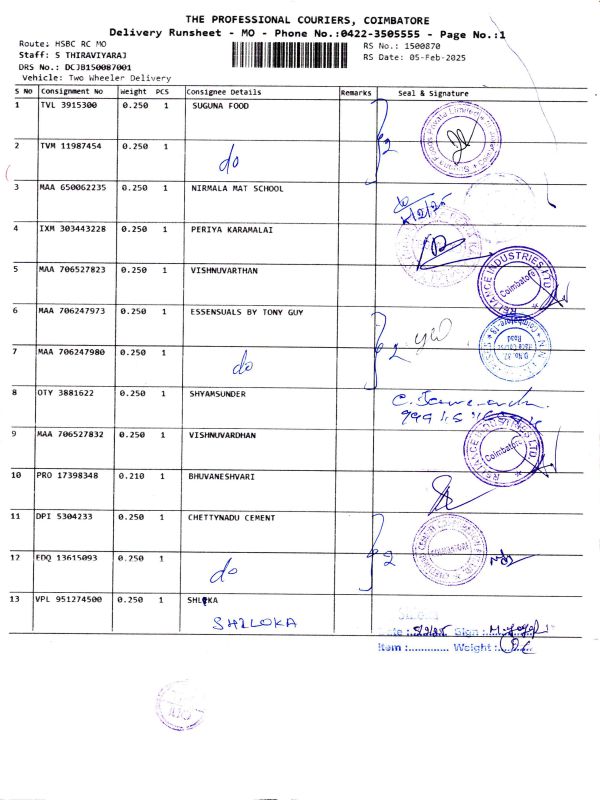 THE PROFESSIONAL COURIERS, COIMBATORE
Delivery Runsheet - MO - Phone No.:0422-3505555 - Page No.:1
Route: HSBC RC MO
RS No.: 1500870
Staff: S THIRAVIYARAJ
RS Date: 05-Feb-2025
DRS No.: DCJB150087001
Vehicle: Two Wheeler Delivery
S No Consignment No Weight PCS Consignee Details Remarks Seal & Signature
1 TVL 3915300 0.250 1 SUGUNA FOOD
2 TVM 11987454 0.250 1 do 2
3 MAA 650062235 0.250 1 NIRMALA MAT SCHOOL
5/2/25
4 IXM 303443228 0.250 1 PERIYA KARAMALAI
5 MAA 706527823 0.250 1 VISHNUVARTHAN
RELIANCE INDUSTRIES LTD. Coimbatore
6 MAA 706247973 0.250 1 ESSENSUALS BY TONY GUY
D.No. 37 Race Course Road Coimbatore-18
7 MAA 706247980 0.250 1 do 2
8 OTY 3881622 0.250 1 SHYAMSUNDER
9 MAA 706527832 0.250 1 VISHNUVARDHAN
RELIANCE INDUSTRIES LTD. Coimbatore
10 PRO 17398348 0.210 1 BHUVANESHVARI
11 DPI 5304233 0.250 1 CHETTYNADU CEMENT
COIMBATORE
12 EDQ 13615093 0.250 1 do 2
13 VPL 951274500 0.250 1 SHLOKA
SHLOKA
Date : 5/2/25 Sign :
Item :............ Weight :